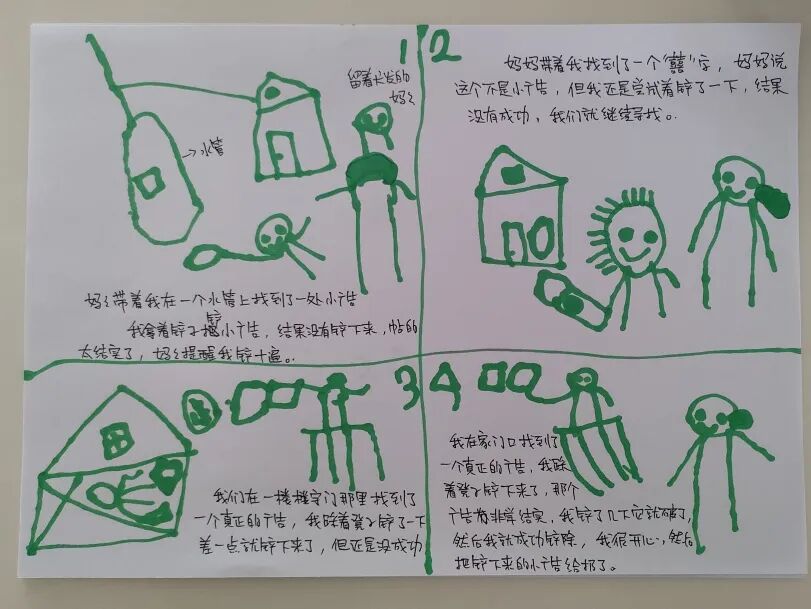 1
留着长发的
妈妈
→水管
妈妈带着我在一个水管上找到了一处小广告
我拿着铲子铲小广告，结果没有铲下来，帖的
太结实了，妈妈提醒我铲十遍。
2
妈妈带着我找到了一个"囍"字，妈妈说
这个不是小广告，但我还是尝试着铲了一下，结果
没有成功，我们就继续寻找。
3
我们在一楼楼宇门那里找到了
一个真正的广告，我踩着凳子铲了一下
差一点就铲下来了，但还是没成功
4
我在家门口找到了
一个真正的广告，我踩
着凳子铲下来了，那个
广告非常结实，我铲了几下它就破了，
然后我就成功铲除，我很开心，然后
把铲下来的小广告给扔了。